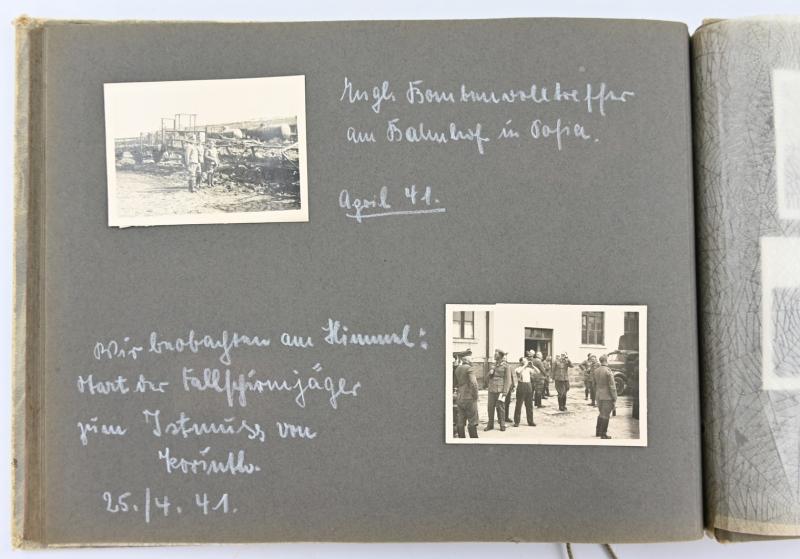 Engl. Bombenvolltreffer
am Bahnhof in Sofia.
April 41.
Wir beobachten am Himmel:
Start der Fallschirmjäger
zum Istmuss von
Korinth.
25./4. 41.